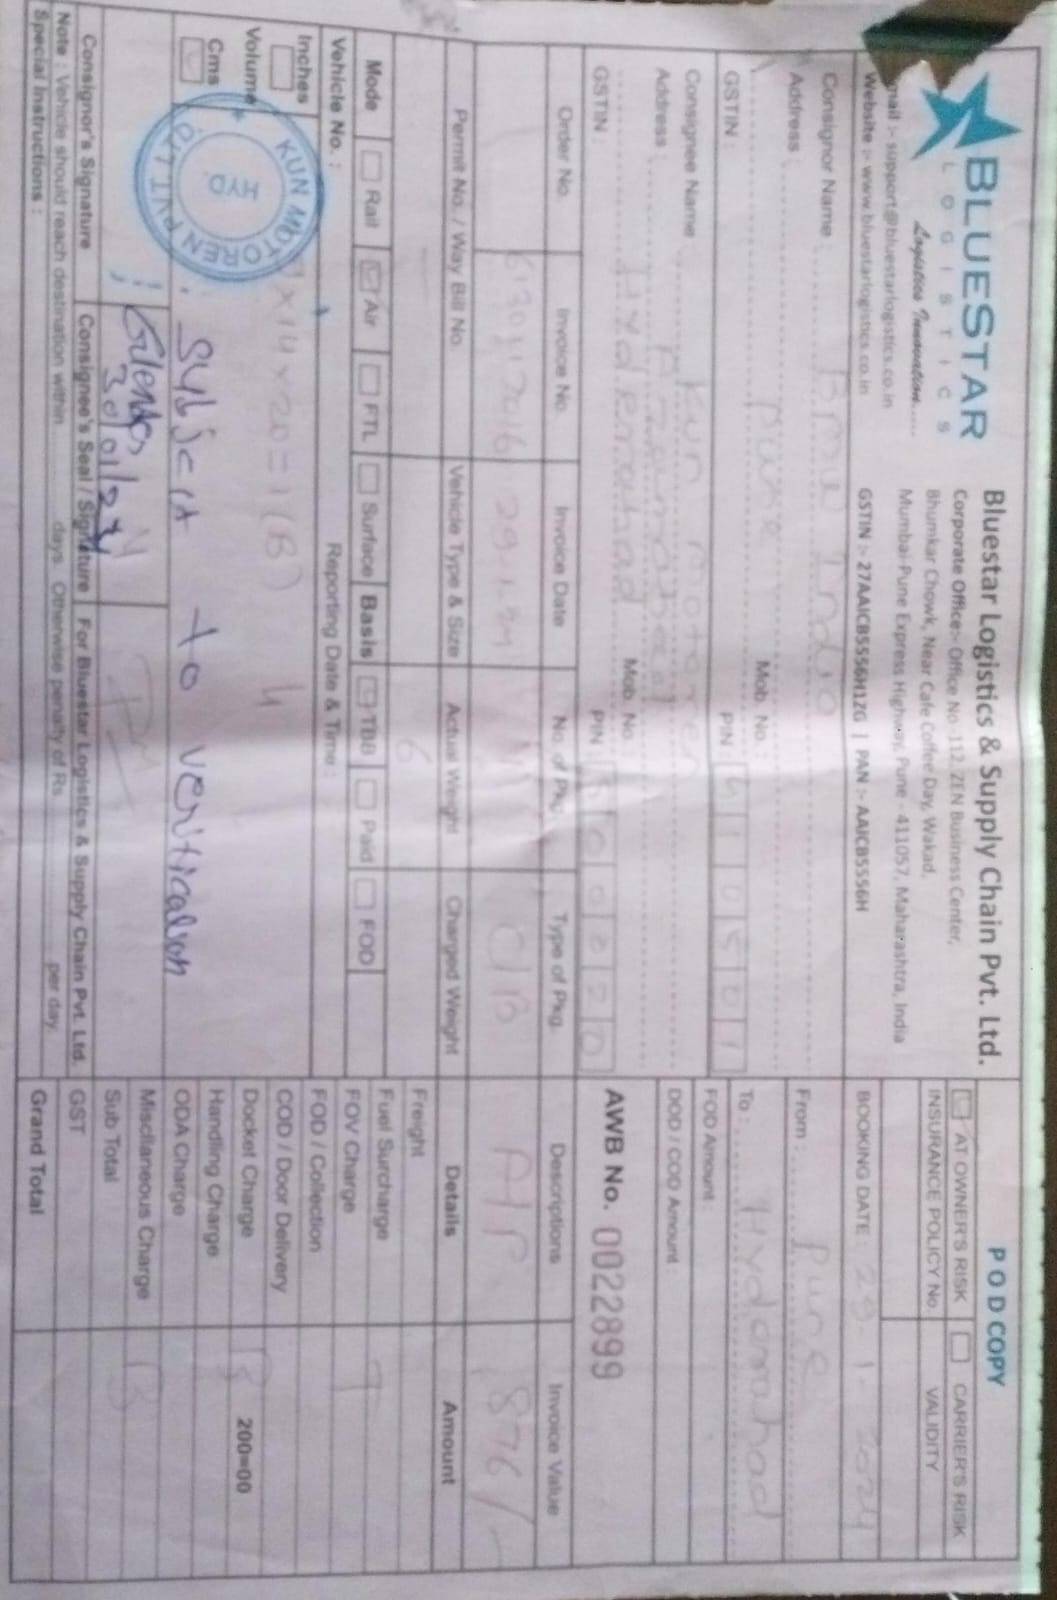 BLUESTAR
LOGISTICS
Logistics Innovation.....
mail :- support@bluestarlogistics.co.in
Website :- www.bluestarlogistics.co.in
Bluestar Logistics & Supply Chain Pvt. Ltd.
Corporate Office:- Office No 112, ZEN Business Center,
Bhumkar Chowk, Near Cafe Coffee Day, Wakad,
Mumbai-Pune Express Highway, Pune - 411057, Maharashtra, India
GSTIN :- 27AAICB5556H1ZG | PAN :- AAICB5556H
POD COPY
AT OWNER'S RISK CARRIER'S RISK
INSURANCE POLICY No. VALIDITY
BOOKING DATE : 29-1-2024
Consignor Name : Bmw India
Address :
Pune Mob. No. :
GSTIN : PIN : 410501
From : Pune
To : Hyderabad
Consignee Name : Kun Motoren
Address :
Hyderabad Mob. No.
GSTIN : PIN 500020
FOD Amount :
DOD / COD Amount :
AWB No. 0022899
Order No. Invoice No. Invoice Date No. of Pkg. Type of Pkg. Descriptions Invoice Value
29-1-24 C/B A/P 876/-
Permit No. / Way Bill No. Vehicle Type & Size Actual Weight Charged Weight
6
Mode Rail Air FTL Surface Basis TBB Paid FOD
Vehicle No. : Reporting Date & Time :
Inches
Volume
Cms
x14x20=1(B) 4
KUN MOTOREN PVT. LTD.
HYD.
Subject to verification
30/01/24
Consignor's Signature Consignee's Seal / Signature For Bluestar Logistics & Supply Chain Pvt. Ltd.
Note : Vehicle should reach destination within days. Otherwise penalty of Rs. per day.
Special Instructions :
Details Amount
Freight
Fuel Surcharge
FOV Charge
FOD / Collection
COD / Door Delivery
Docket Charge 200=00
Handling Charge
ODA Charge
Miscllaneous Charge
Sub Total
GST
Grand Total